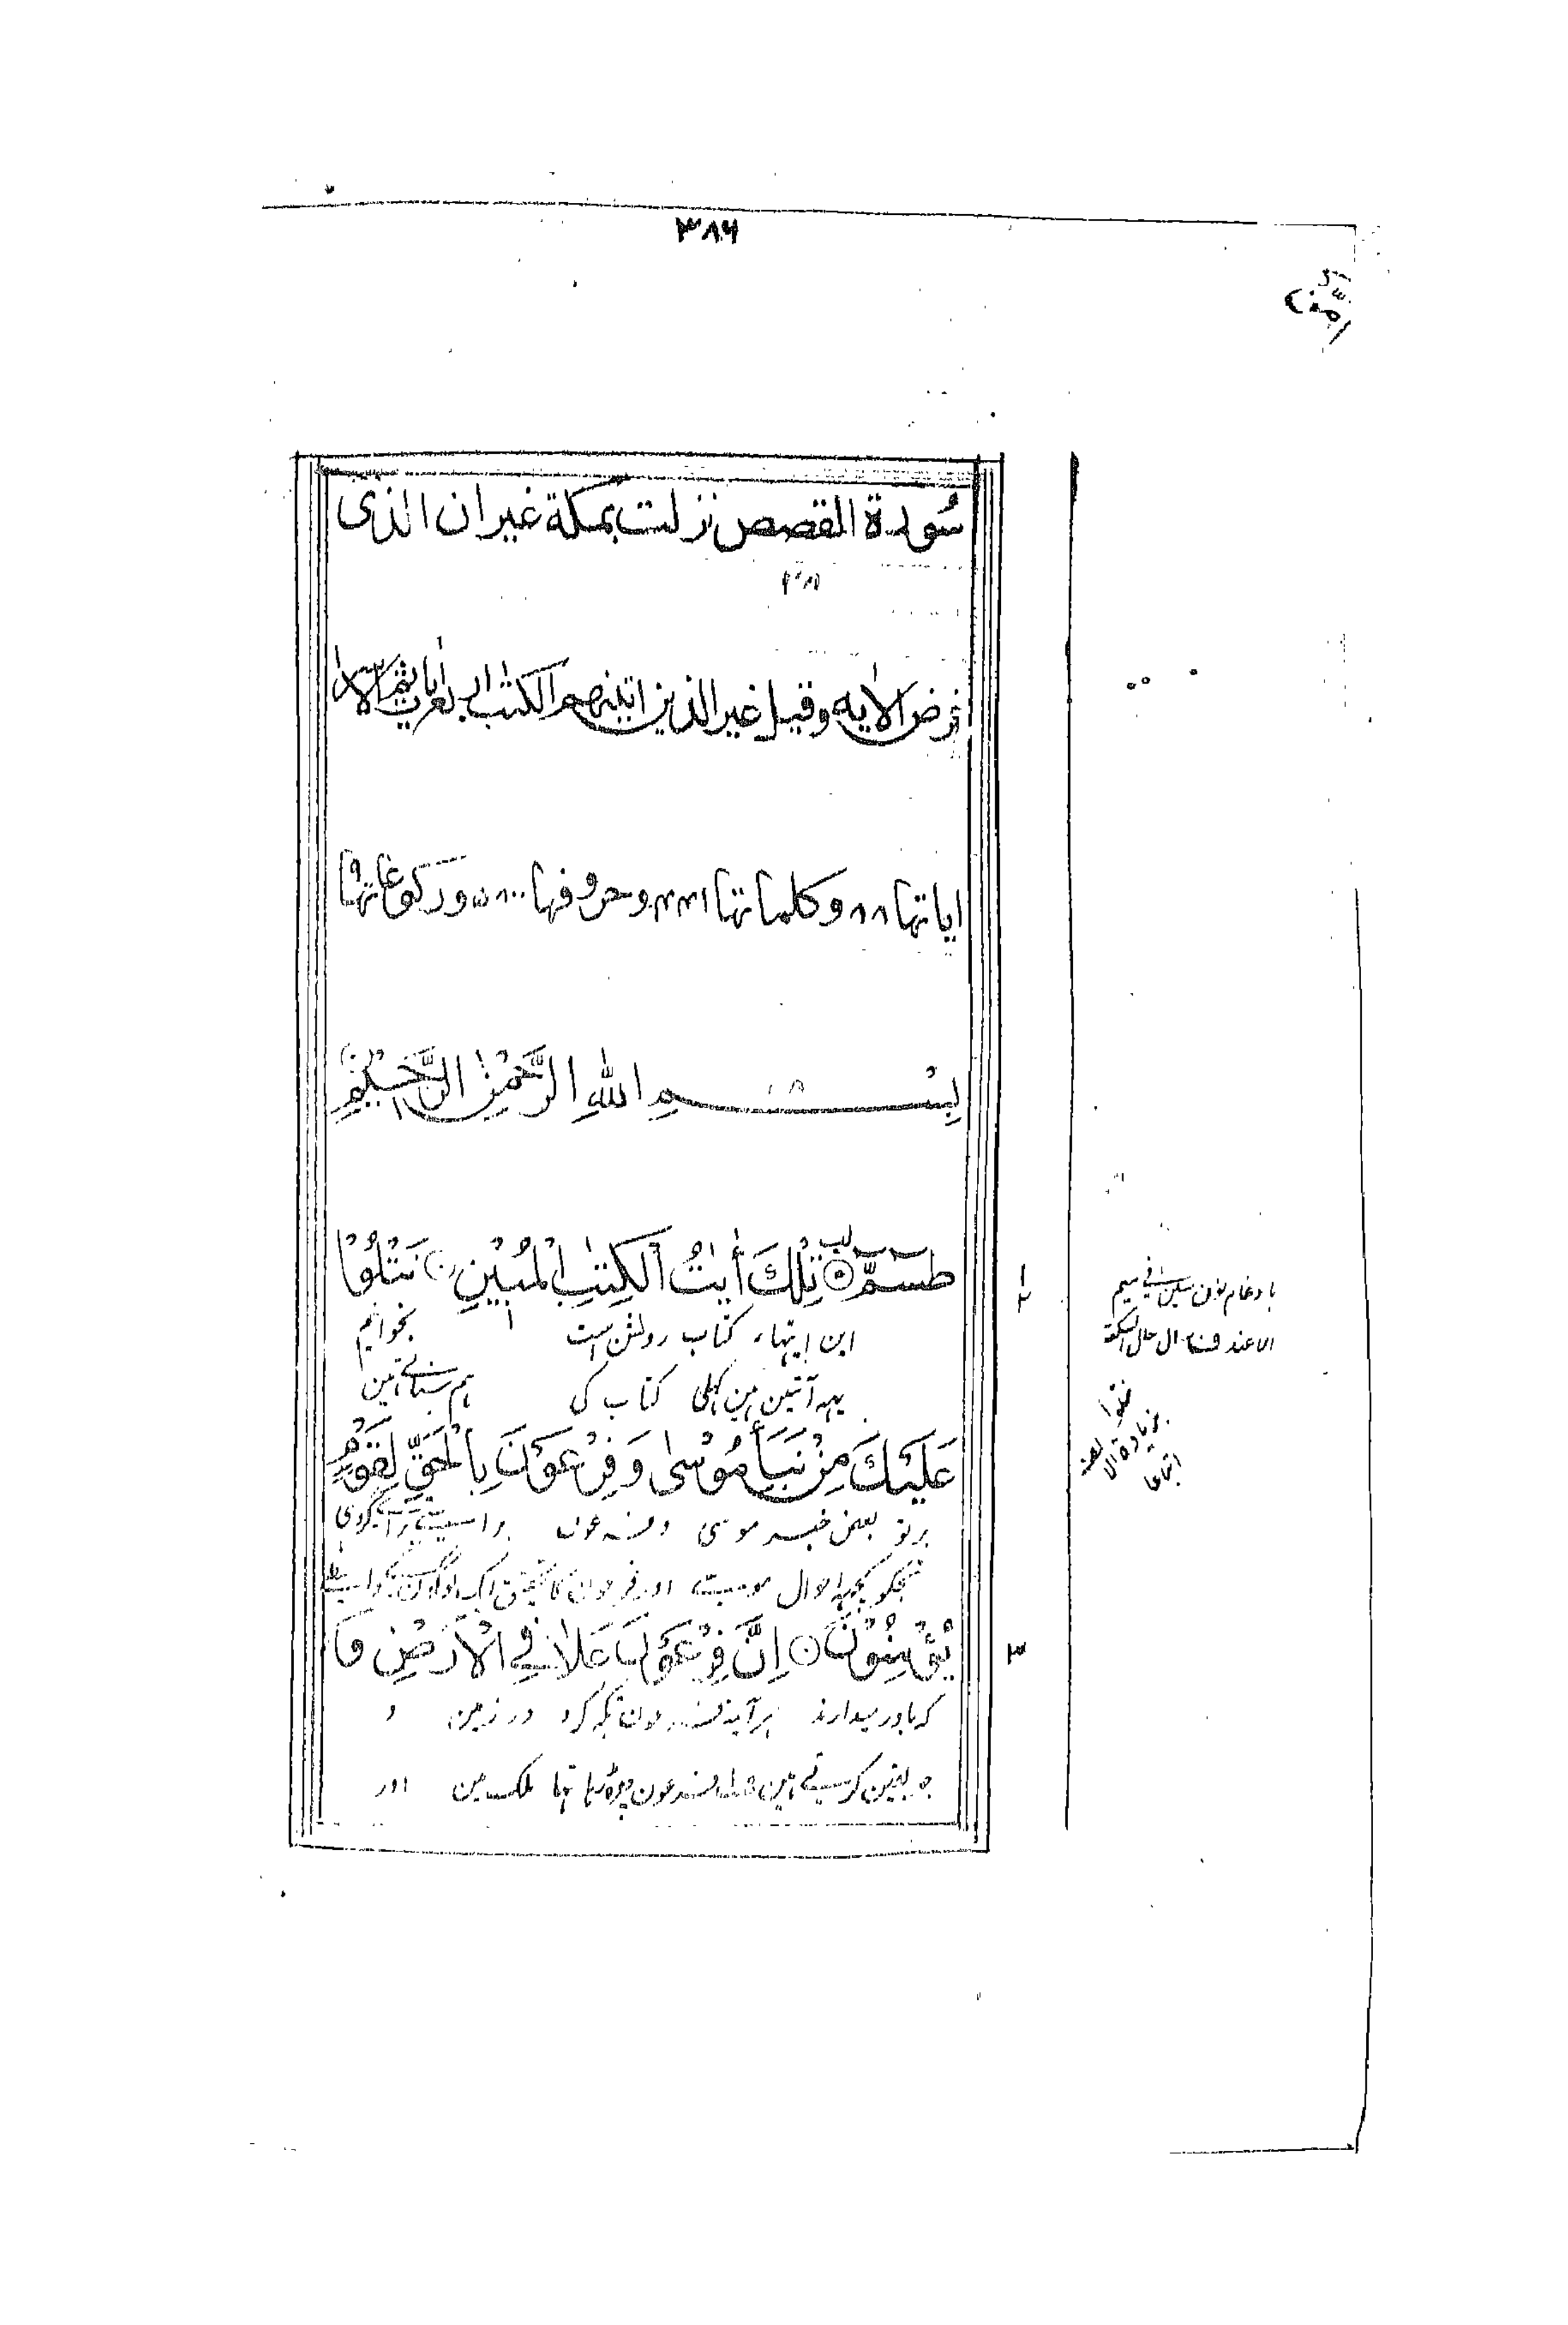 ۳۸۶
سُورة القصص نزلت بمكة غير ان الذى
فرض الاٰية وقيل غير الذين اتينٰهم الكتٰب
اياتها ۸۸ وكلماتها ۴۴۱ وحروفها ۵۸۰۰ وركوعاتها ۹
بِسْمِ اللهِ الرَّحْمٰنِ الرَّحِيْمِ
طٰسٓمّٓ تِلْكَ أٰيٰتُ الْكِتٰبِ الْمُبِيْنِ نَتْلُوْا
این ایتهاء کتاب روشن است بخوانیم
یہہ آتین ہین کہلی کتاب کی ہم سناتے ہین
عَلَيْكَ مِنْ نَبَأِ مُوْسٰى وَفِرْعَوْنَ بِالْحَقِّ لِقَوْمٍ
بر تو بعض خبر موسی و فرعون براستی برای گروہی
تجکو کچہہ احوال موسیٰ اور فرعون کا تحقیق ایک لوگون کے واسطے
يُؤْمِنُوْنَ اِنَّ فِرْعَوْنَ عَلَا فِي الْأَرْضِ وَ
کہ باور میدارند ہر آینہ فرعون تکبر کرد در زمین و
جو یقین کرتے ہین فرعون چڑہ رہا تہا ملک مین اور
۱
۲
۳
بادغام نون سين فى ميم